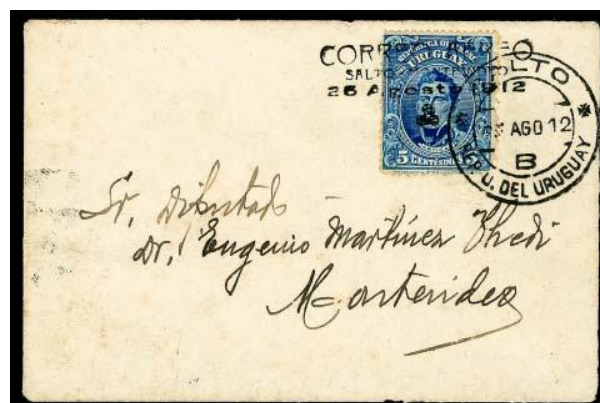 CORREO AEREO
SALTO
26 Agosto 1912
REPUBLICA O. DEL
URUGUAY
5 CENTESIMOS 5
SALTO
AGO 12
B
REP. O. DEL URUGUAY
Sr. Diputado
Dr. Eugenio Martínez Thedi
Montevideo